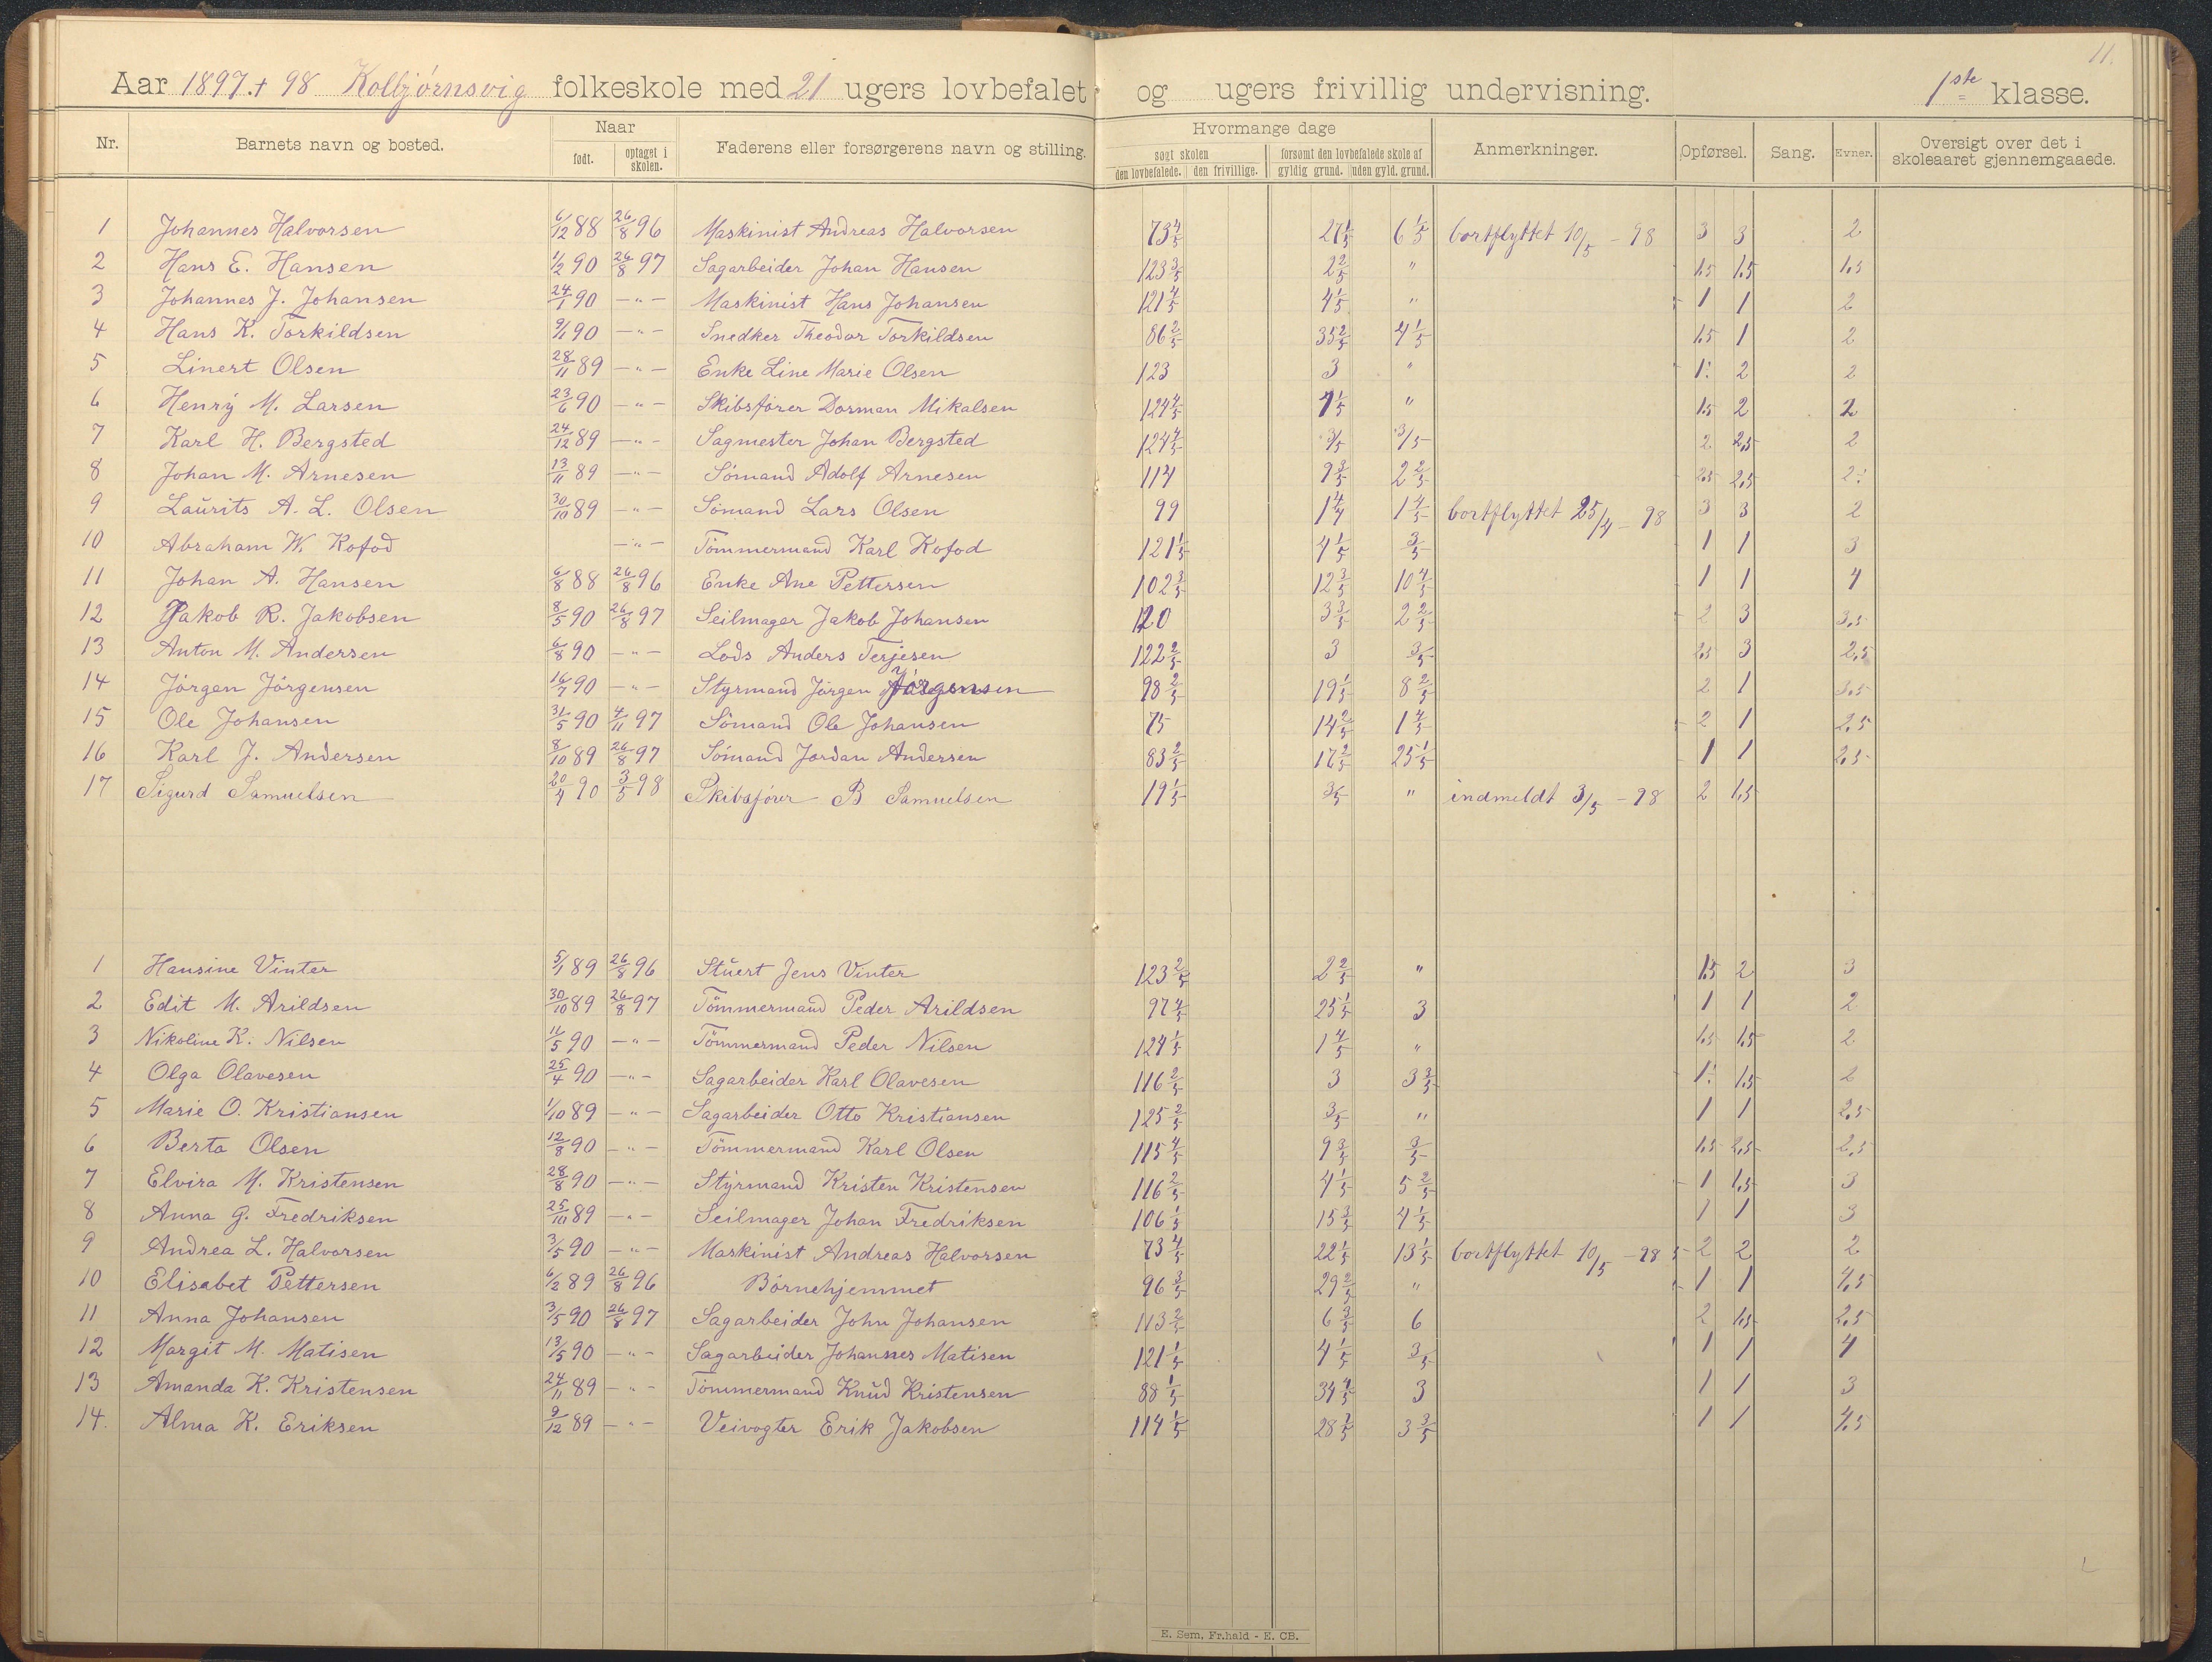 11.
Aar 1897 + 98 Kolbjørnsvig folkeskole med 21 ugers lovbefalet og ugers frivillig undervisning. 1ste klasse.
Nr. Barnets navn og bosted. Naar født. optaget i skolen. Faderens eller forsørgerens navn og stilling. Hvormange dage søgt skolen den lovbefalede. den frivillige. forsømt den lovbefalede skole af gyldig grund. uden gyld. grund. Anmerkninger. Opførsel. Sang. Evner. Oversigt over det i skoleaaret gjennemgaaede.
1 Johannes Halvorsen 6/12 88 26/8 96 Maskinist Andreas Halvorsen 73 4/5 27 1/5 6 1/5 bortflyttet 10/5 - 98 3 3 2
2 Hans E. Hansen 1/2 90 26/8 97 Sagarbeider Johan Hansen 123 3/5 2 2/5 " 1,5 1,5 1,5
3 Johannes J. Johansen 24/1 90 - " - Maskinist Hans Johansen 121 4/5 4 1/5 " 1 1 2
4 Hans K. Torkildsen 9/11 90 - " - Snedker Theodor Torkildsen 86 2/5 35 2/5 4 1/5 1,5 1 2
5 Linert Olsen 28/11 89 - " - Enke Line Marie Olsen 123 3 " 1: 2 2
6 Henrÿ M. Larsen 23/6 90 - " - Skibsfører Dorman Mikalsen 124 4/5 1 1/5 " 1,5 2 2
7 Karl H. Bergsted 24/12 89 - " - Sagmester Johan Bergsted 124 4/5 3/5 3/5 2 2,5 2
8 Johan M. Arnesen 13/11 89 - " - Sømand Adolf Arnesen 114 9 3/5 2 2/5 2,5 2,5 2:
9 Laurits A. L. Olsen 30/10 89 - " - Sømand Lars Olsen 99 1 4/4 1 4/5 bortflyttet 25/4 - 98 3 3 2
10 Abraham W. Kofod - " - Tømmermand Karl Kofod 121 1/5 4 1/5 3/5 1 1 3
11 Johan A. Hansen 6/8 88 26/8 96 Enke Ane Pettersen 102 3/5 12 3/5 10 4/5 1 1 4
12 Jakob R. Jakobsen 8/5 90 26/8 97 Seilmager Jakob Johansen 120 3 3/5 2 2/5 2 3 3,5
13 Anton M. Andersen 6/8 90 - " - Lods Anders Terjesen 122 2/5 3 3/5 2,5 3 2,5
14 Jørgen Jørgensen 16/7 90 - " - Styrmand Jørgen Jørgensen 98 2/5 19 1/5 8 2/5 2 1 3,5
15 Ole Johansen 31/5 90 4/11 97 Sømand Ole Johansen 75 14 2/5 1 4/5 2 1 2,5
16 Karl J. Andersen 8/10 89 26/8 97 Sømand Jordan Andersen 83 2/5 17 2/5 25 1/5 1 1 2,5
17 Sigurd Samuelsen 20/4 90 3/5 98 Skibsfører B Samuelsen 19 1/5 3/5 " indmeldt 3/5 - 98 2 1,5
1 Hansine Vinter 5/1 89 26/8 96 Stuert Jens Vinter 123 2/5 2 2/5 " 1,5 2 3
2 Edit M. Arildsen 30/10 89 26/8 97 Tømmermand Peder Arildsen 97 4/5 25 1/5 3 1 1 2
3 Nikoline K. Nilsen 11/5 90 - " - Tømmermand Peder Nilsen 124 1/5 1 4/5 " 1,5 1,5 2
4 Olga Olavesen 25/4 90 - " - Sagarbeider Karl Olavesen 116 2/5 3 3 3/5 1: 1,5 2
5 Marie O. Kristiansen 1/10 89 - " - Sagarbeider Otto Kristiansen 125 2/5 3/5 " 1 1 2,5
6 Berta Olsen 12/8 90 - " - Tømmermand Karl Olsen 115 4/5 9 3/5 3/5 1,5 2,5 2,5
7 Elvira M. Kristensen 28/8 90 - " - Styrmand Kristen Kristensen 116 2/5 4 1/5 5 2/5 1 1,5 3
8 Anna G. Fredriksen 25/10 89 - " - Seilmager Johan Fredriksen 106 1/5 15 3/5 4 1/5 1 1 3
9 Andrea L. Halvorsen 3/5 90 - " - Maskinist Andreas Halvorsen 73 4/5 22 1/5 13 1/5 bortflyttet 10/5 - 98 2 2 2
10 Elisabet Pettersen 6/2 89 26/8 96 Børnehjemmet 96 3/5 29 2/5 " 1 1 4,5
11 Anna Johansen 3/5 90 26/8 97 Sagarbeider John Johansen 113 2/5 6 3/5 6 2 1,5 2,5
12 Margit M. Matisen 13/5 90 - " - Sagarbeider Johannes Matisen 121 1/5 4 1/5 3/5 1 1 4
13 Amanda K. Kristensen 24/11 89 - " - Tømmermand Knud Kristensen 88 1/5 34 4/5 3 1 1 3
14. Alma K. Eriksen 9/12 89 - " - Veivogter Erik Jakobsen 114 1/5 28 1/5 3 3/5 1 1 4,5
E. Sem, Fr.hald - E. CB.